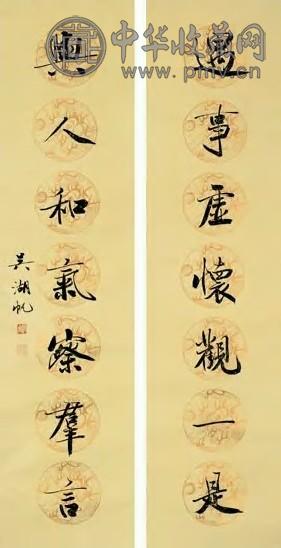 中华收藏网
www.pmv.cn
遇事虛懷觀一是
與人和氣察羣言
吳湖帆